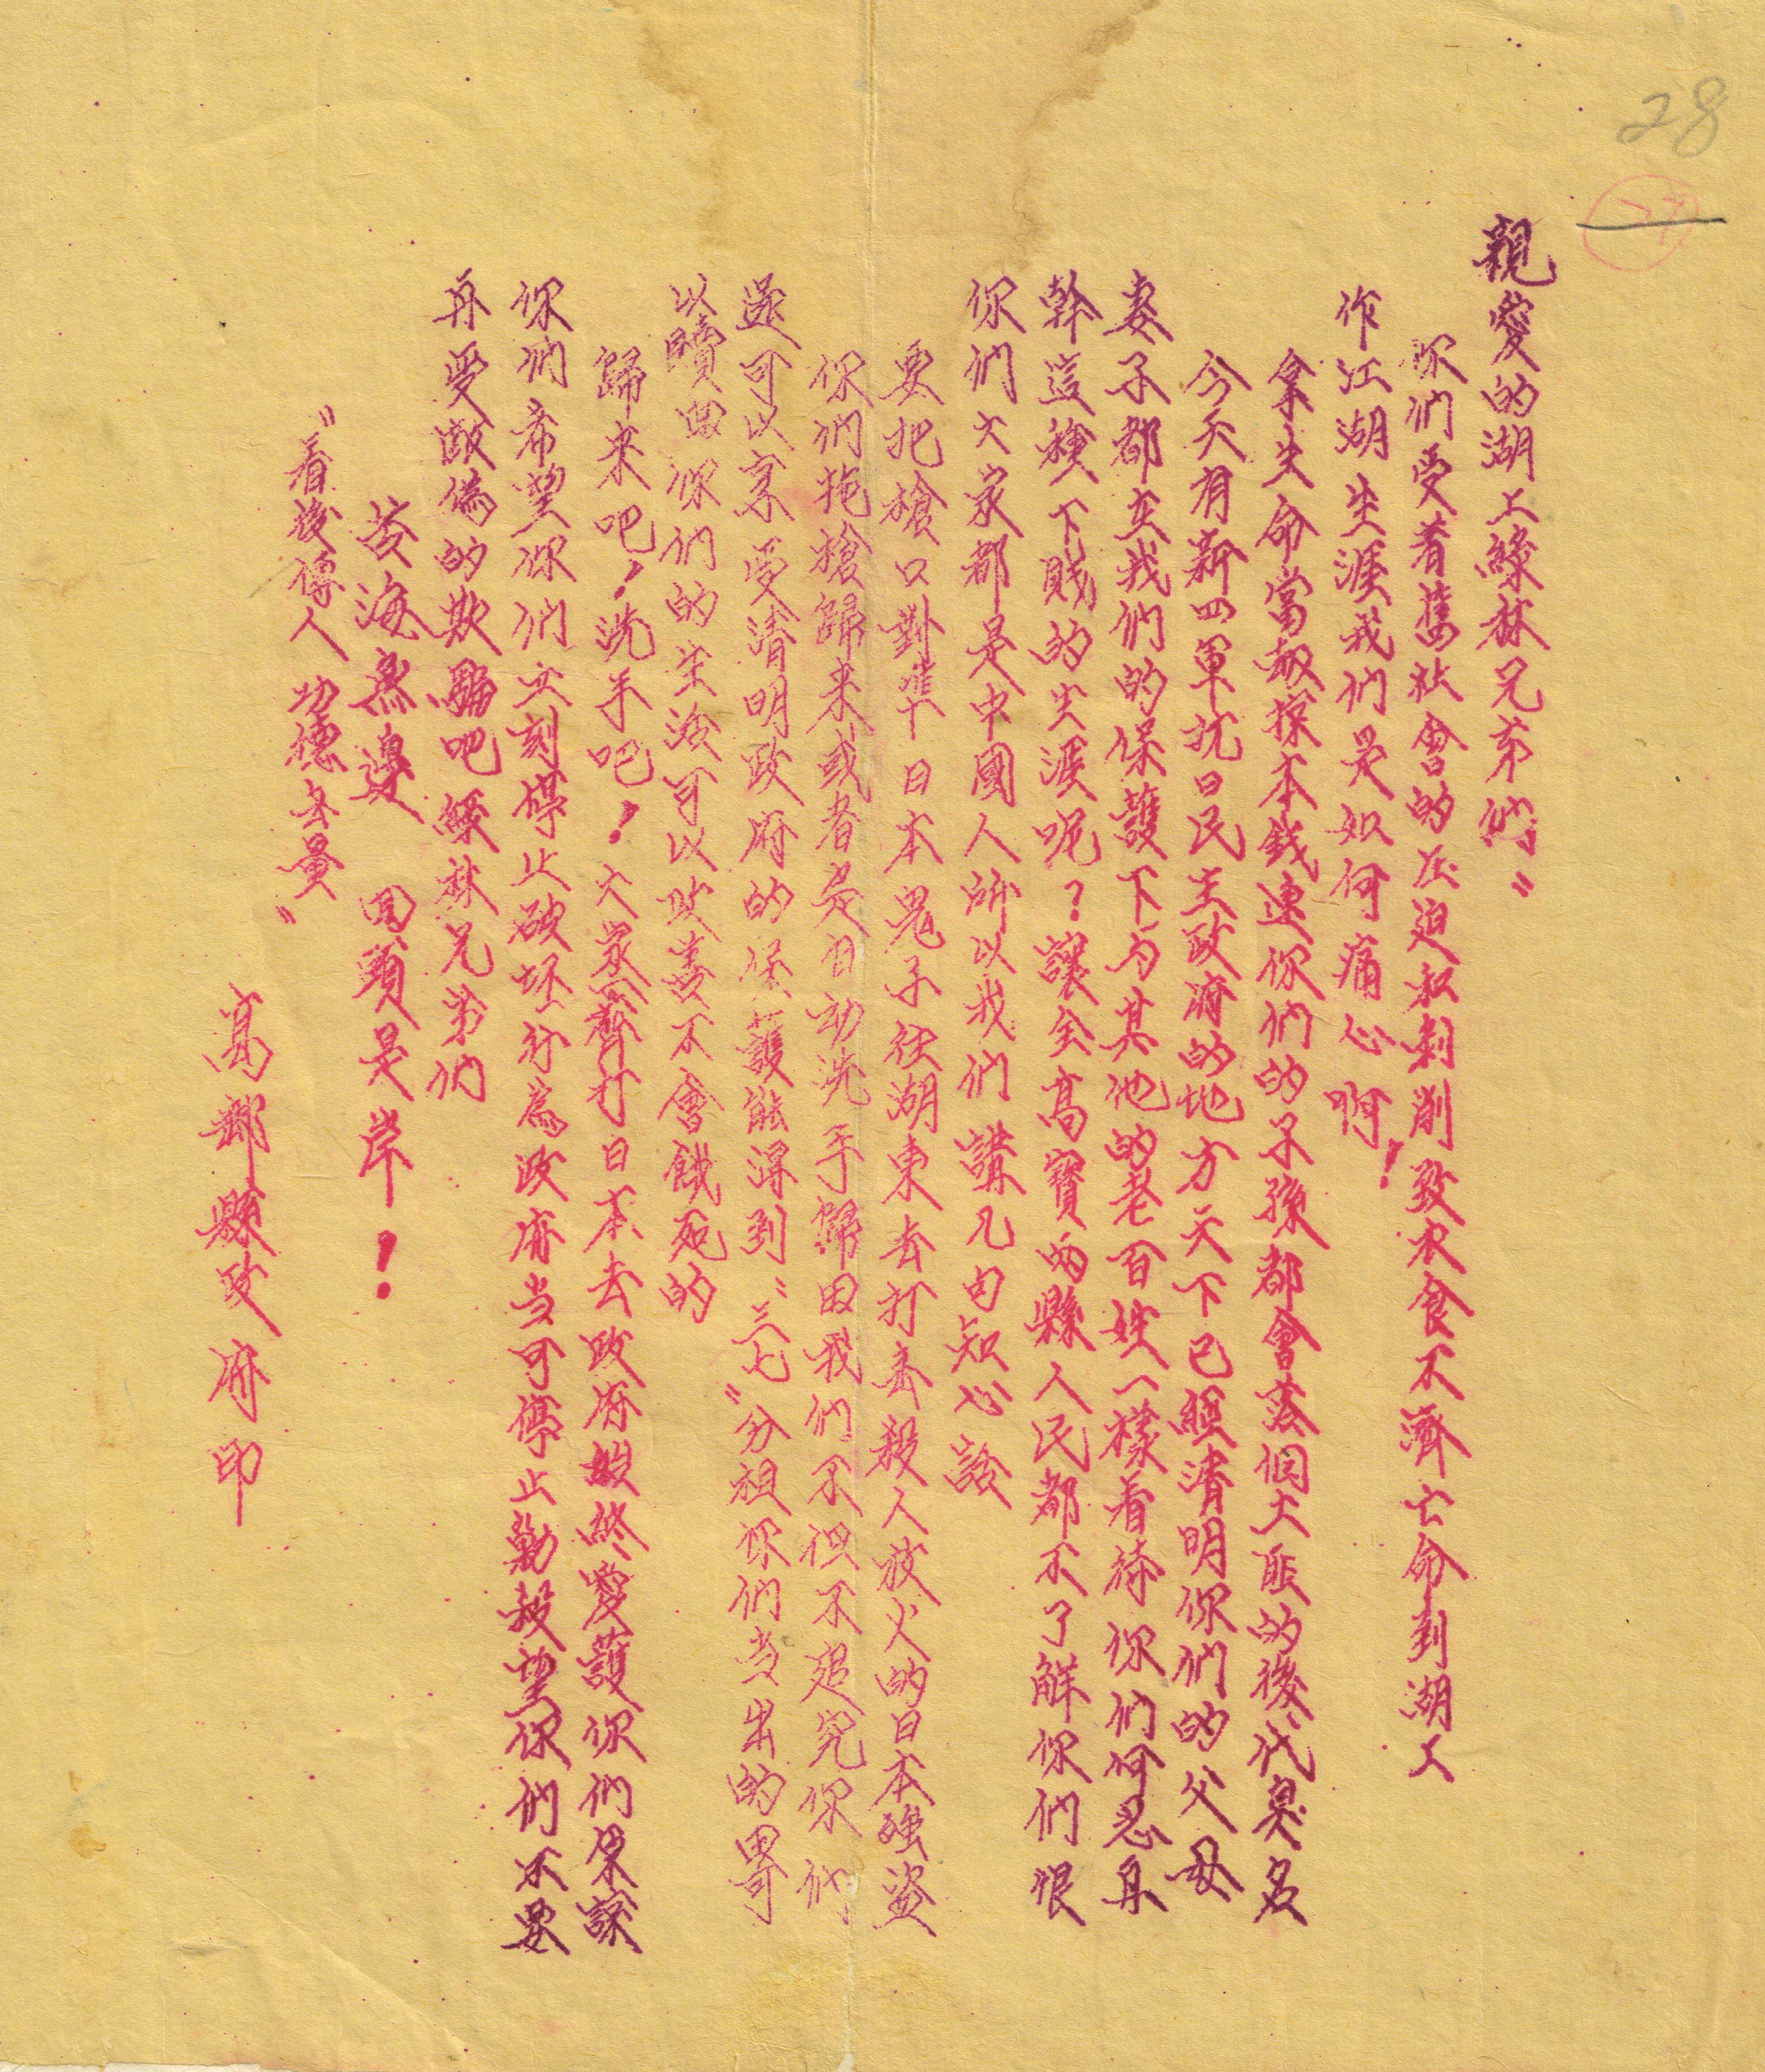 28
親愛的湖上綠林兄弟們〃
你們受着舊社會的压迫和剝削致衣食不濟亡命到湖上
作江湖生涯我們是如何痛心啊！
拿生命當報探本錢連你們的子孫都會落個土匪的後代臭名
今天有新四軍抗日民主政府的地方天下已經清明你們的父母
妻子都在我们的保護下与其他的老百姓一樣看待你们何忍再
幹這種下賤的生涯呢？讓全高寶两縣人民都不了解你们恨
你們大家都是中國人所以我们講几句知心話
要把槍口對準日本鬼子往湖東去打去殺人放火的日本強盜
你們拖槍歸来或者是自动洗手歸田我们不但不追究你们
還可以享受清明政府的保護能得到〝三七〞分租你们当出的田可
以贖回你们的生活可以改善不會餓死的
歸来吧！洗手吧！大家一齊打日本去政府始終愛護你们原諒
你们希望你们立刻停止破坏行為政府当可停止勦殺望你们不要
再受敵偽的欺騙吧綠林兄弟们
苦海無邊 回頭是岸！
〝看後傳人 功德无量〞
高郵縣政府印